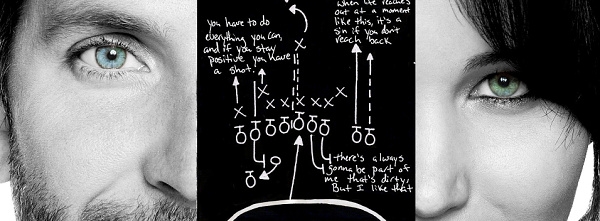 you have to do
everything you can,
and if you stay
positive you have
a shot.
when life reaches
out at a moment
like this, it's a
sin if you don't
reach back
there's always
gonna be part of
me that's dirty,
But I like that